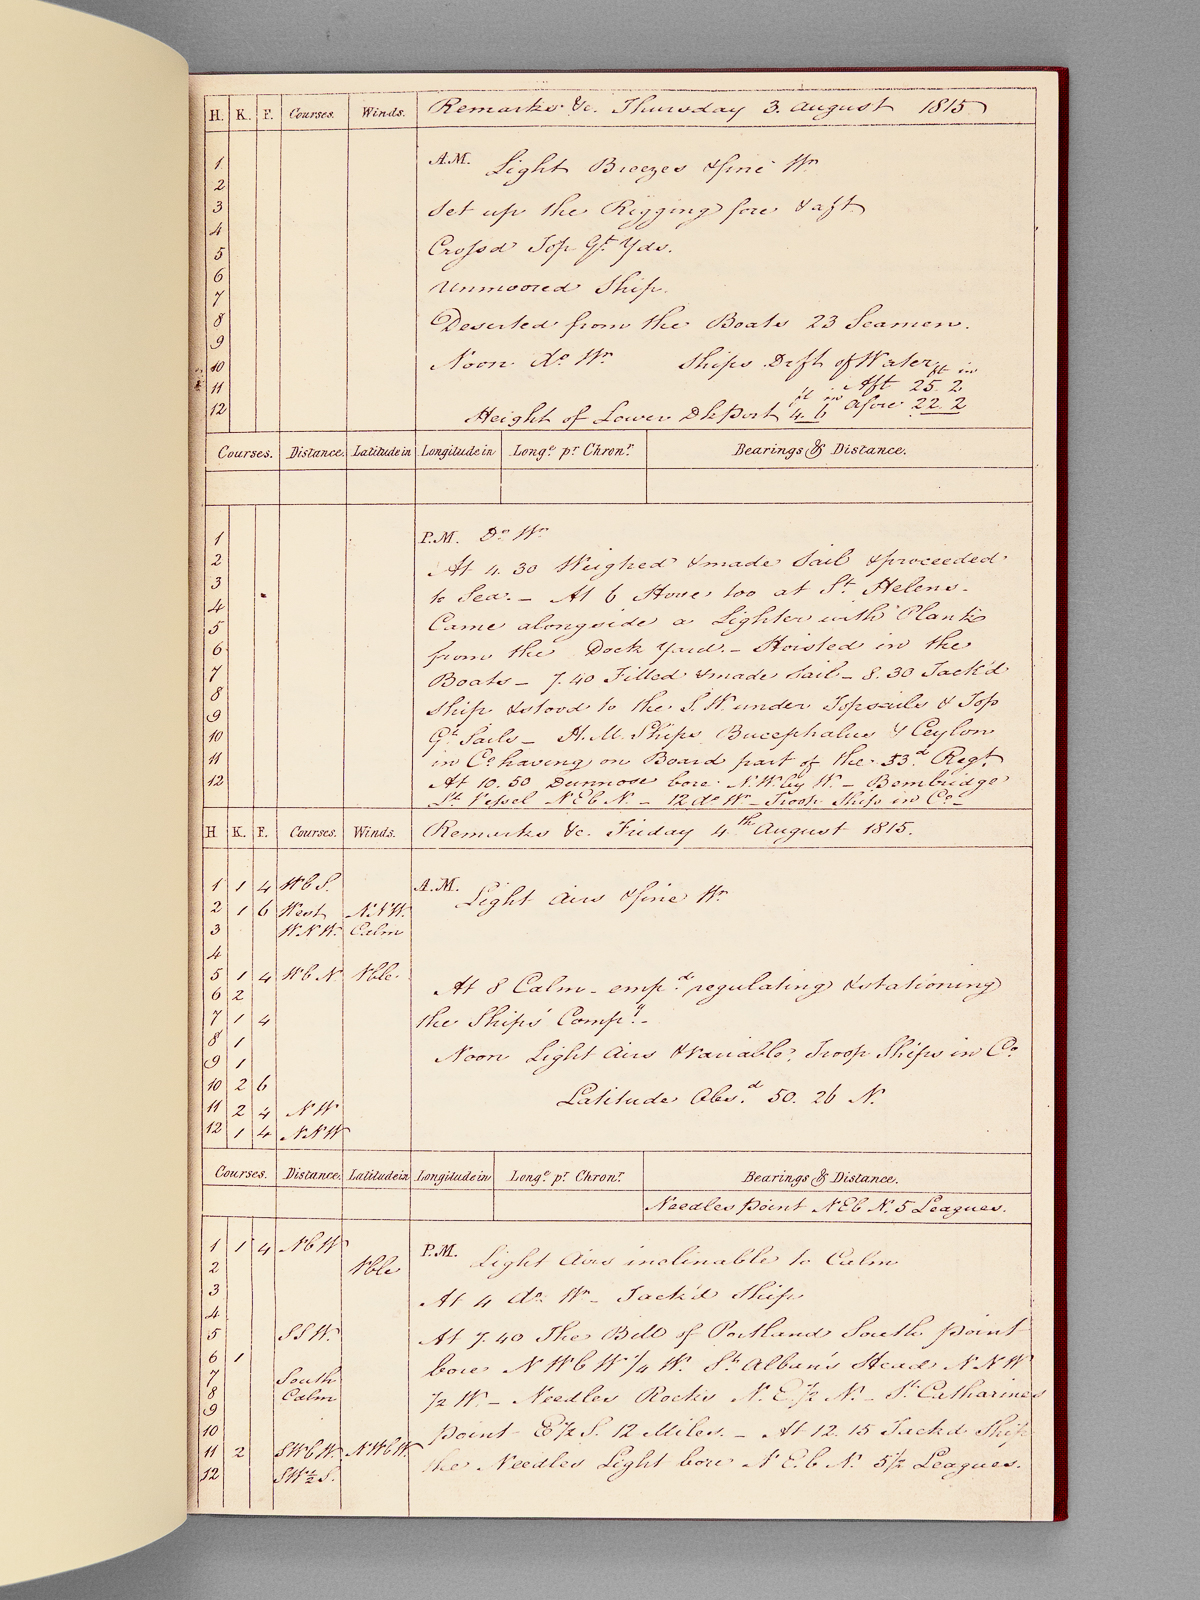 H. K. F. Courses. Winds. Remarks &c. Thursday 3. August 1815
A.M. Light Breezes & fine Wr
1
2
3 Set up the Rigging fore & aft.
4
5 Crossd Top Gt Yds.
6
7 Unmoored Ship.
8 Deserted from the Boats 23 Seamen.
9
10 Noon do Wr Ships Drft of Water
ft in
11 Aft 25. 2
ft in
12 Height of Lower Dk Port 4. 6 afore 22. 2
Courses. Distance. Latitude in Longitude in Longe pr Chronr. Bearings & Distance.
1 P.M. Do Wr
2 At 4. 30 Weighed & made Sail & proceeded
3 to Sea. – At 6 Hove too at St Helens.
4 Came alongside a Lighter with Planks
5 from the Dock Yard. – Hoisted in the
6 Boats – 7. 40 Filled & made Sail – 8. 30 Tack'd
7 Ship & stood to the S.W. under Topsails & Top
8 Gt Sails – H.M. Ships Bucephalus & Ceylon
9 in Co having on Board part of the 53d Regt
10 At 10. 50 Dunnose bore N.W. by W. – Bembridge
11 Lt Vessel N E b N. – 12 do Wr – Troop Ships in Co –
12
H K. F. Courses. Winds. Remarks &c. Friday 4th August 1815.
1 1 4 W b S. A.M. Light Airs & fine Wr
2 1 6 West N.N.W.
3 W N W. Calm
4
5 1 4 W b N. Vble.
6 2 At 8 Calm – empd regulating & stationing
7 1 4 the Ships' Compy. –
8 1
9 1 Noon Light Airs & variable, Troop Ships in Co
10 2 6
11 2 4 N W Latitude Obsd. 50. 26 N.
12 1 4 N N W
Courses. Distance. Latitude in Longitude in Longe pr Chronr. Bearings & Distance.
Needles Point N E b N. 5 Leagues.
1 1 4 N b W P.M. Light Airs inclinable to Calm
2 Vble
3 At 4 do Wr – Tack'd Ship
4
5 S S W. At 7. 40 The Bill of Portland South point
6 1 bore N W b W 1/4 W. St Alban's Head N N W
7 South
8 Calm 1/2 W. – Needles Rocks N. E. 1/2 N. – St Catharines
9
10 point E 1/2 S. 12 Miles. – At 12. 15 Tack'd Ship
11 2 S W b W. N W b W.
12 S W 1/2 S. the Needles Light bore N E. b N. 5 1/2 Leagues.